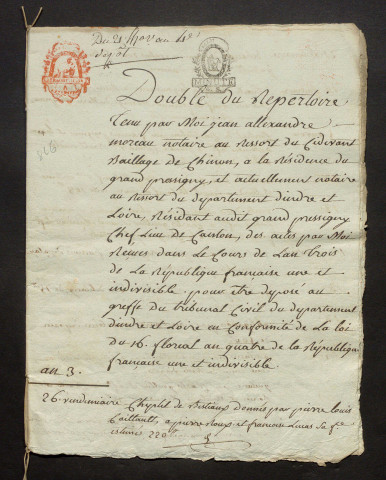 Double du Repertoire,
tenu par Moi jean allexandre
moreau notaire au Ressort du Cidevant
Bailliage de Chinon, a la Résidence du
grand pressigny, et actuellement notaire
au Ressort du departement dindre et
Loire, Résidant audit grand pressigny
Chef Lieu de Canton, des actes par Moi
Reçues dans le Cours de Lan trois
de La République française une et
indivisible. pour être deposé au
greffe du tribunal Civil du departement
dindre et Loire en Conformité de La loi
du 16. floreal an quatre de la République
française une et indivisible
an 3.
26. vendemiaire Cheptel de Bestiaux donnés par pierre Louis
a pierre et françoise Lucas sa fe
estimés 220